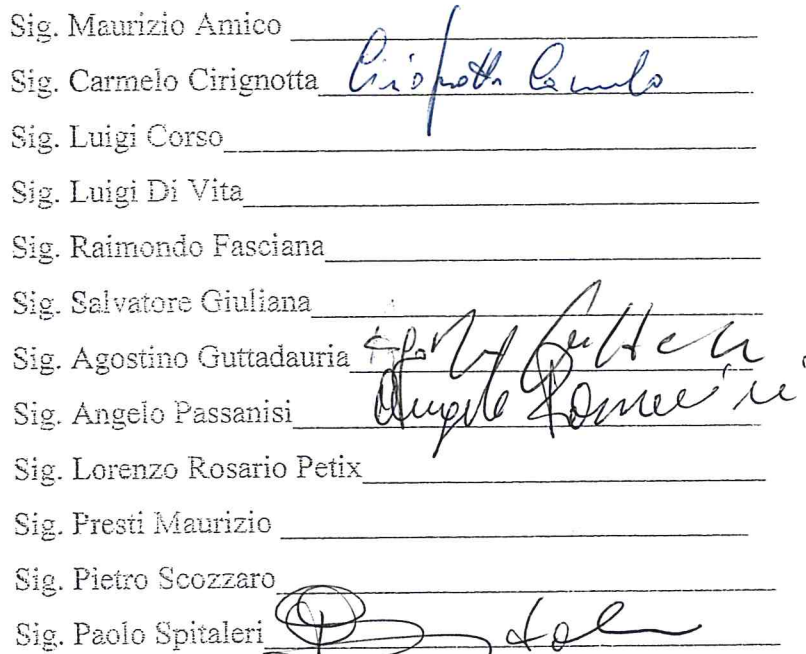 Sig. Maurizio Amico
Sig. Carmelo Cirignotta Cirignotta Carmelo
Sig. Luigi Corso
Sig. Luigi Di Vita
Sig. Raimondo Fasciana
Sig. Salvatore Giuliana
Sig. Agostino Guttadauria
Sig. Angelo Passanisi Angelo
Sig. Lorenzo Rosario Petix
Sig. Presti Maurizio
Sig. Pietro Scozzaro
Sig. Paolo Spitaleri